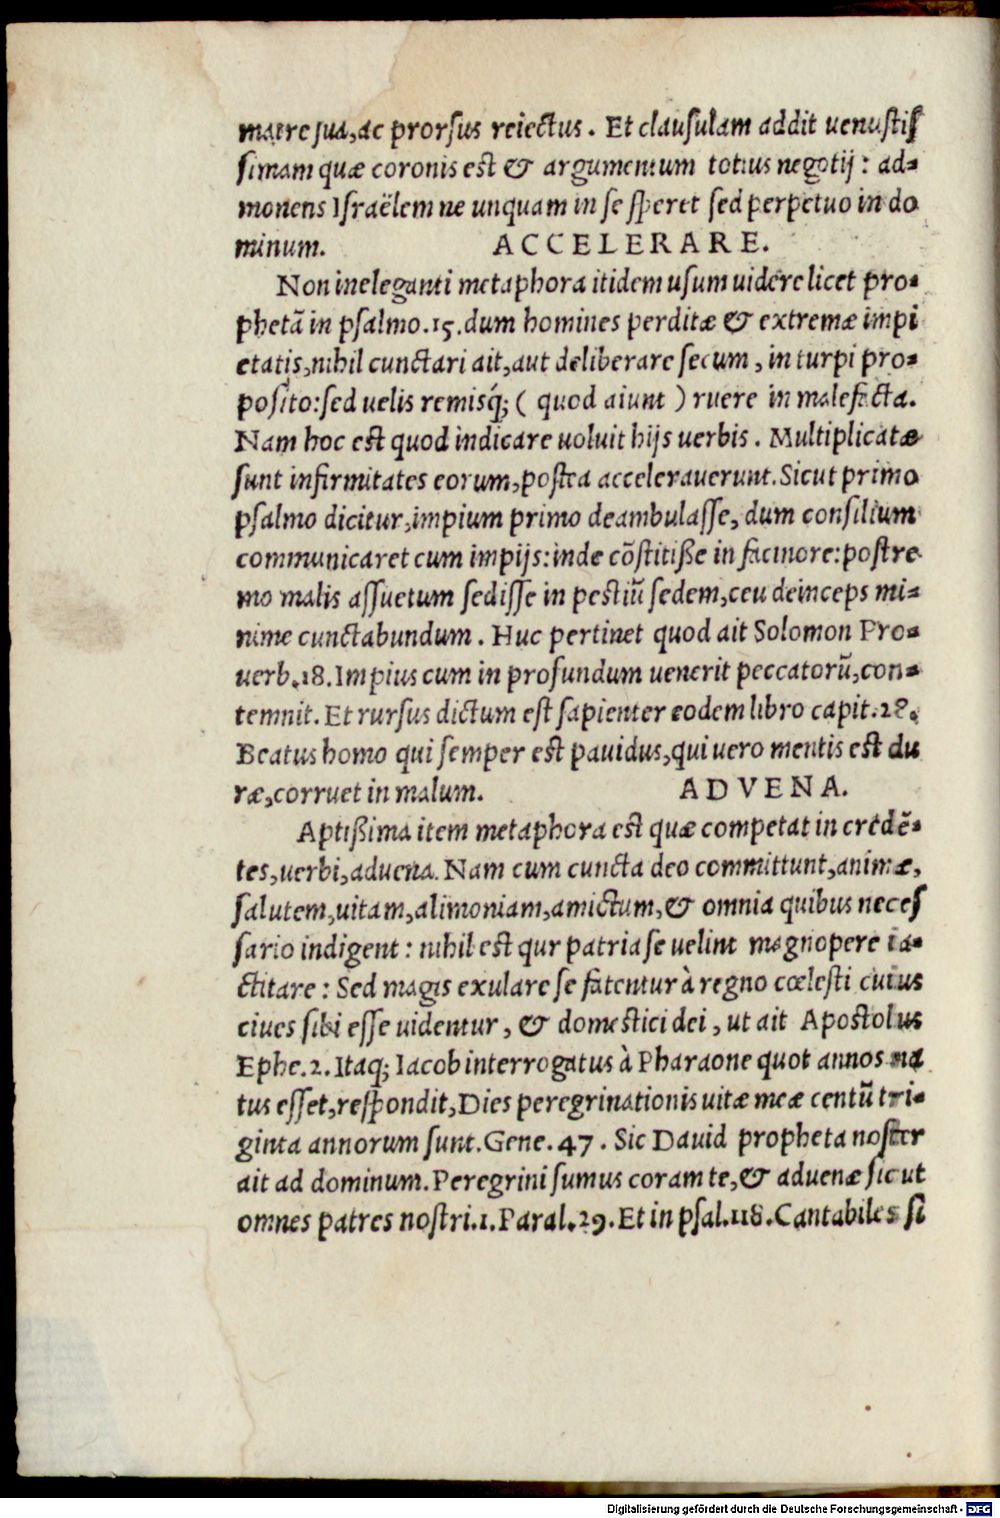 matre sua,ac prorsus reiectus. Et clausulam addit uenustiſ
ſimam quæ coronis est & argumentum totius negotij: ad-
monens Iſraëlem ne unquam in ſe ſperet ſed perpetuo in do
minum. ACCELERARE.
Non ineleganti metaphora itidem uſum uidere licet pro-
phetā in pſalmo.15.dum homines perditæ & extremæ impi
etatis,nihil cunctari ait,aut deliberare ſecum, in turpi pro-
poſito:ſed uelis remisq́;( quod aiunt ) ruere in malefacta.
Nam hoc est quod indicare uoluit hijs uerbis. Multiplicatæ
ſunt infirmitates eorum,postea accelerauerunt.Sicut primo
pſalmo dicitur,impium primo deambulaſſe, dum conſilium
communicaret cum impijs:inde cōstitiße in facinore:postre
mo malis aſſuetum ſediſſe in pestiū ſedem,ceu deinceps mi-
nime cunctabundum. Huc pertinet quod ait Solomon Pro-
uerb.18.Impius cum in profundum uenerit peccatorū,con-
temnit. Et rurſus dictum est ſapienter eodem libro capit.28.
Beatus homo qui ſemper est pauidus,qui uero mentis est du
ræ,corruet in malum. ADVENA.
Aptißima item metaphora est quæ competat in credē-
tes,uerbi,aduena. Nam cum cuncta deo committunt,animæ,
ſalutem,uitam,alimoniam,amictum,& omnia quibus neceſ
ſario indigent: nihil est qur patria ſe uelint magnopere ia-
ctitare: Sed magis exulare ſe fatentur à regno cœlesti cuius
ciues ſibi eſſe uidentur, & domestici dei, ut ait Apostolus
Ephe.2. Itaq; Iacob interrogatus à Pharaone quot annos na
tus eſſet,reſpondit,Dies peregrinationis uitæ meæ centū tri-
ginta annorum ſunt.Gene.47. Sic Dauid propheta noster
ait ad dominum.Peregrini ſumus coram te,& aduenæ ſicut
omnes patres nostri.1.Paral.29.Et in pſal.118.Cantabiles ſi
Digitalisierung gefördert durch die Deutsche Forschungsgemeinschaft - DFG